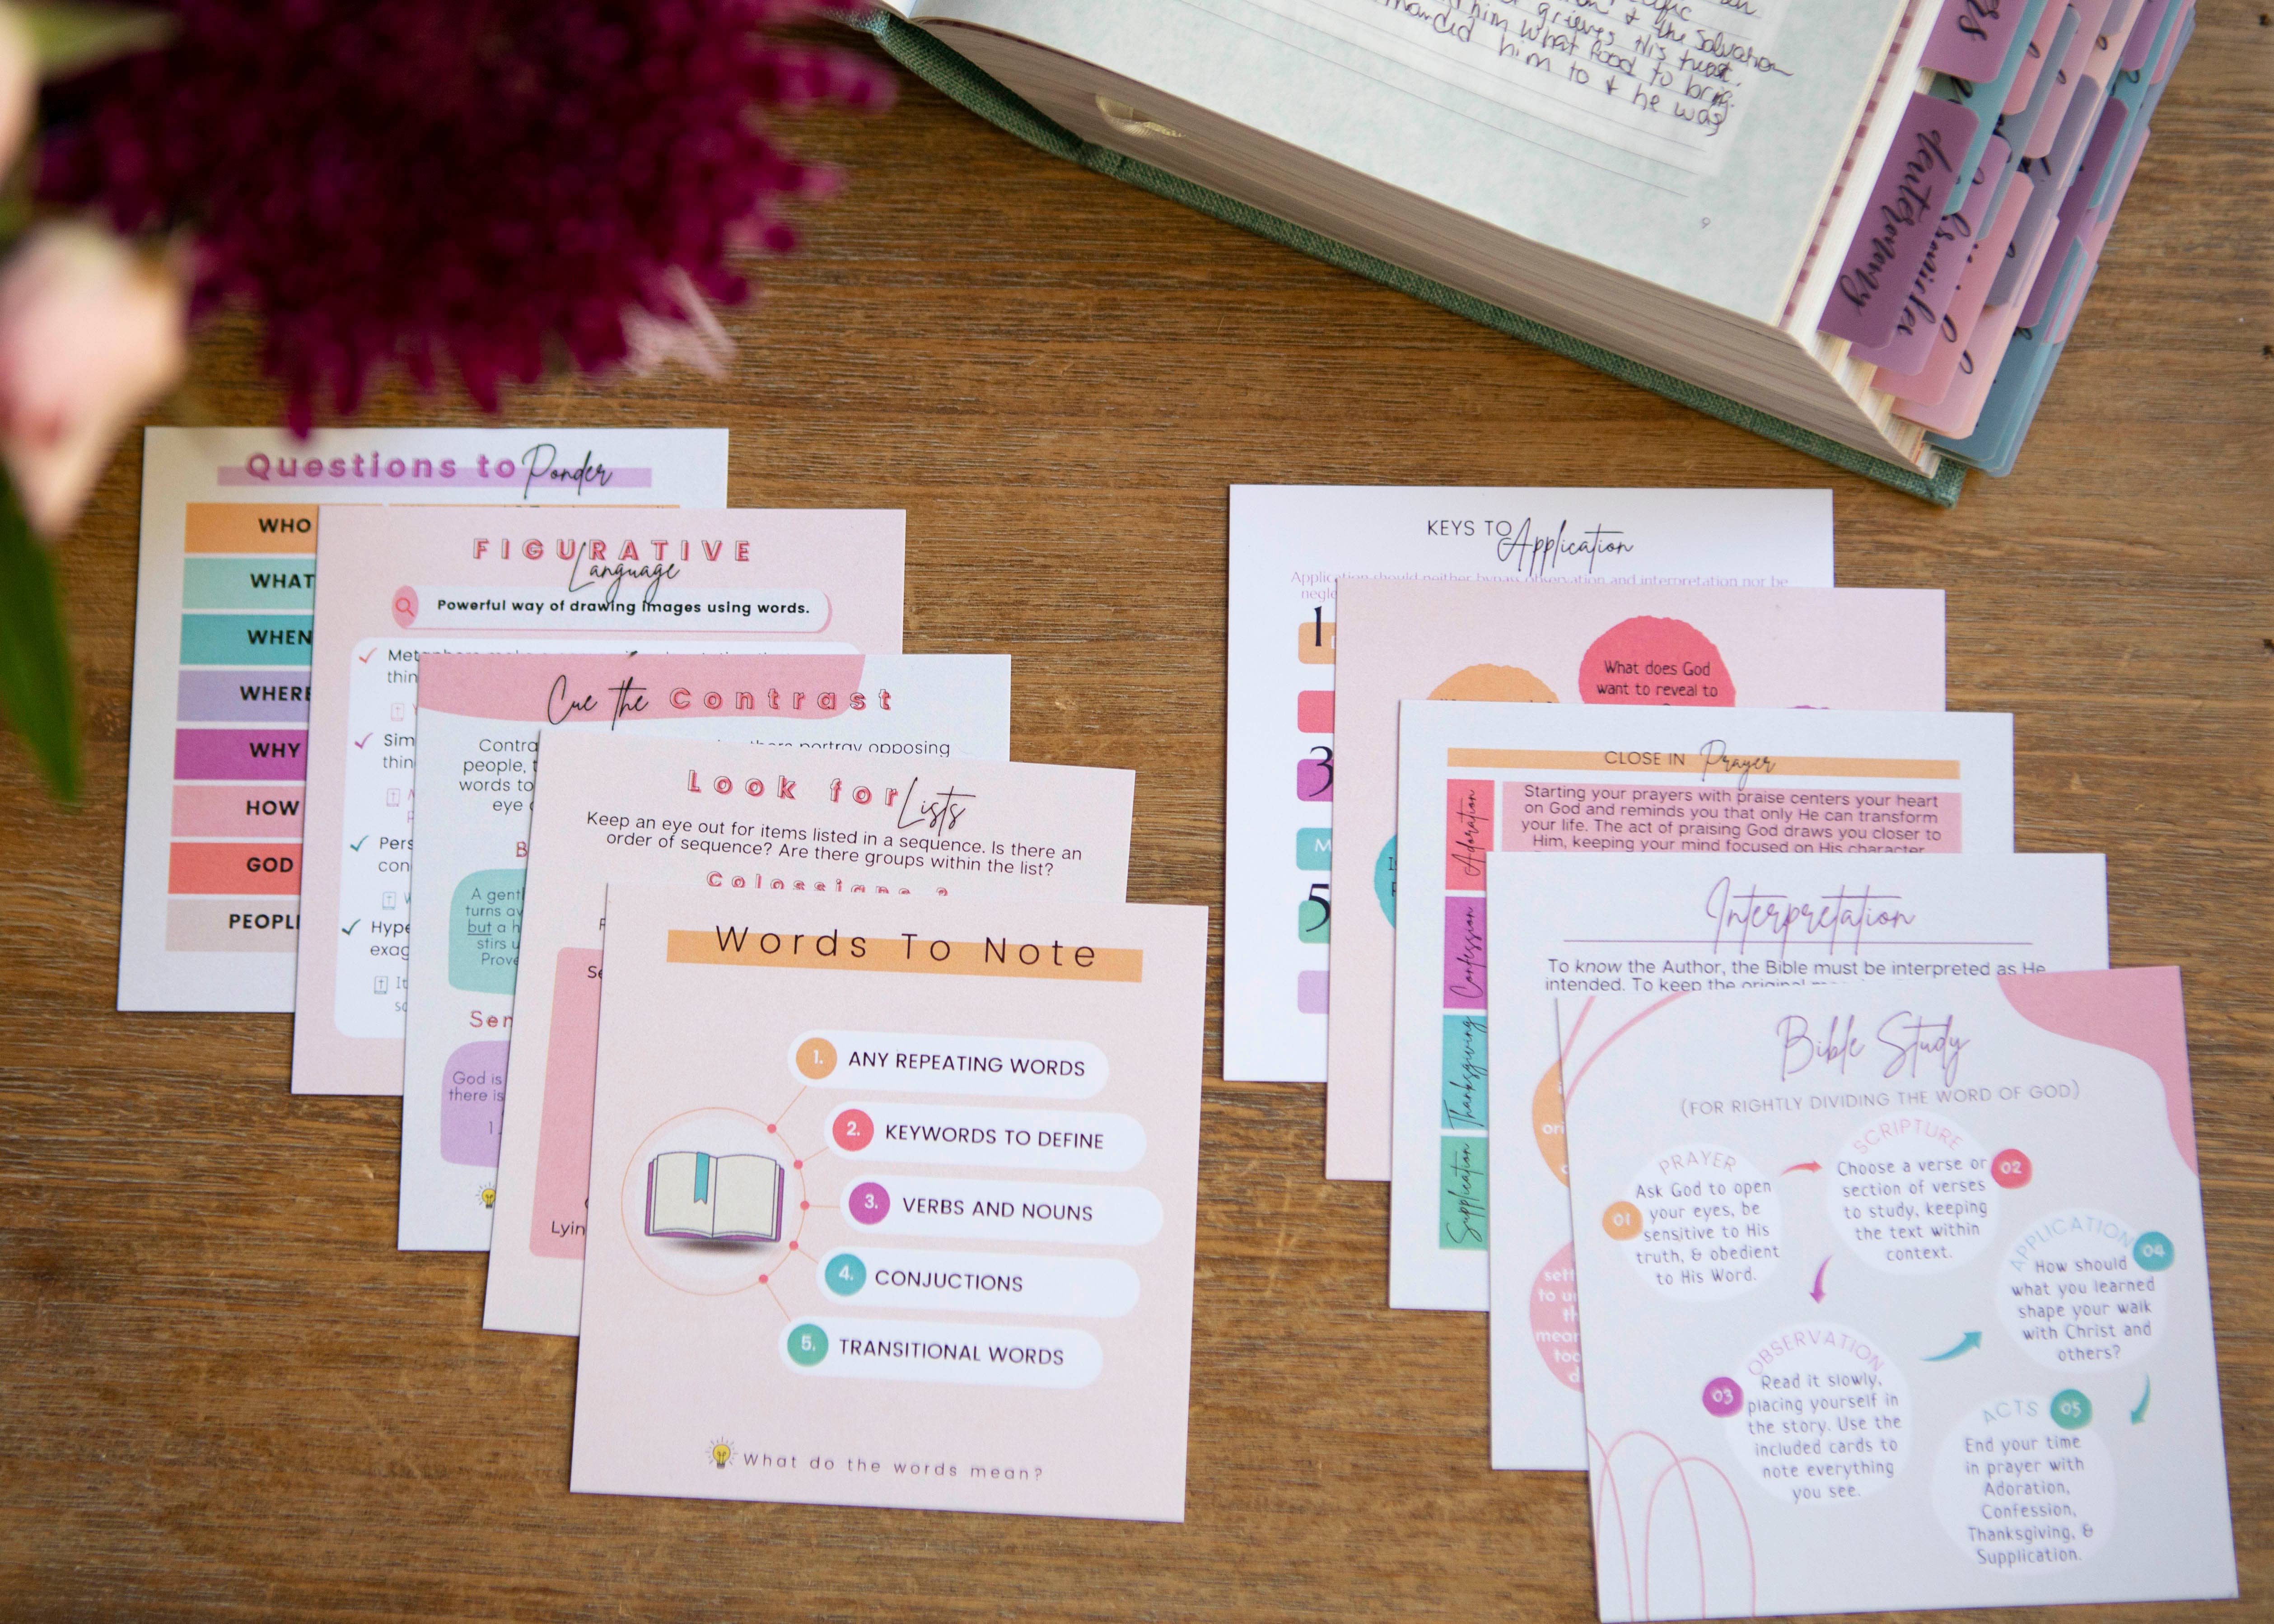 & the Salvation
grieves His heart.
him what food to bring.
him to & he was
9
deuteronomy
Questions to Ponder
WHO
WHAT
WHEN
WHERE
WHY
HOW
GOD
PEOPL
FIGURATIVE
Language
Powerful way of drawing images using words.
thin
Sim
thin
Pers
con
Hype
exag
It
Cue the Contrast
portray opposing
Contra
people,
words to
eye
B
A gentl
turns av
but a h
stirs u
Prove
Sen
God is
there is
Look for Lists
Keep an eye out for items listed in a sequence. Is there an
order of sequence? Are there groups within the list?
Se
Lyin
Words To Note
1. ANY REPEATING WORDS
2. KEYWORDS TO DEFINE
3. VERBS AND NOUNS
4. CONJUCTIONS
5. TRANSITIONAL WORDS
What do the words mean?
KEYS TO Application
Application should neither bypass observation and interpretation nor be
negle
1
3
M
5
What does God
want to reveal to
CLOSE IN Prayer
Adoration
Starting your prayers with praise centers your heart
on God and reminds you that only He can transform
your life. The act of praising God draws you closer to
Him, keeping your mind focused on His character
Confession
Thanksgiving
Supplication
Interpretation
To know the Author, the Bible must be interpreted as He
intended. To keep the original
ori
self
to u
mean
too
Bible Study
(FOR RIGHTLY DIVIDING THE WORD OF GOD)
PRAYER
01
Ask God to open
your eyes, be
sensitive to His
truth, & obedient
to His Word.
SCRIPTURE
02
Choose a verse or
section of verses
to study, keeping
the text within
context.
OBSERVATION
03
Read it slowly,
placing yourself in
the story. Use the
included cards to
note everything
you see.
APPLICATION
04
How should
what you learned
shape your walk
with Christ and
others?
ACTS
05
End your time
in prayer with
Adoration,
Confession,
Thanksgiving, &
Supplication.